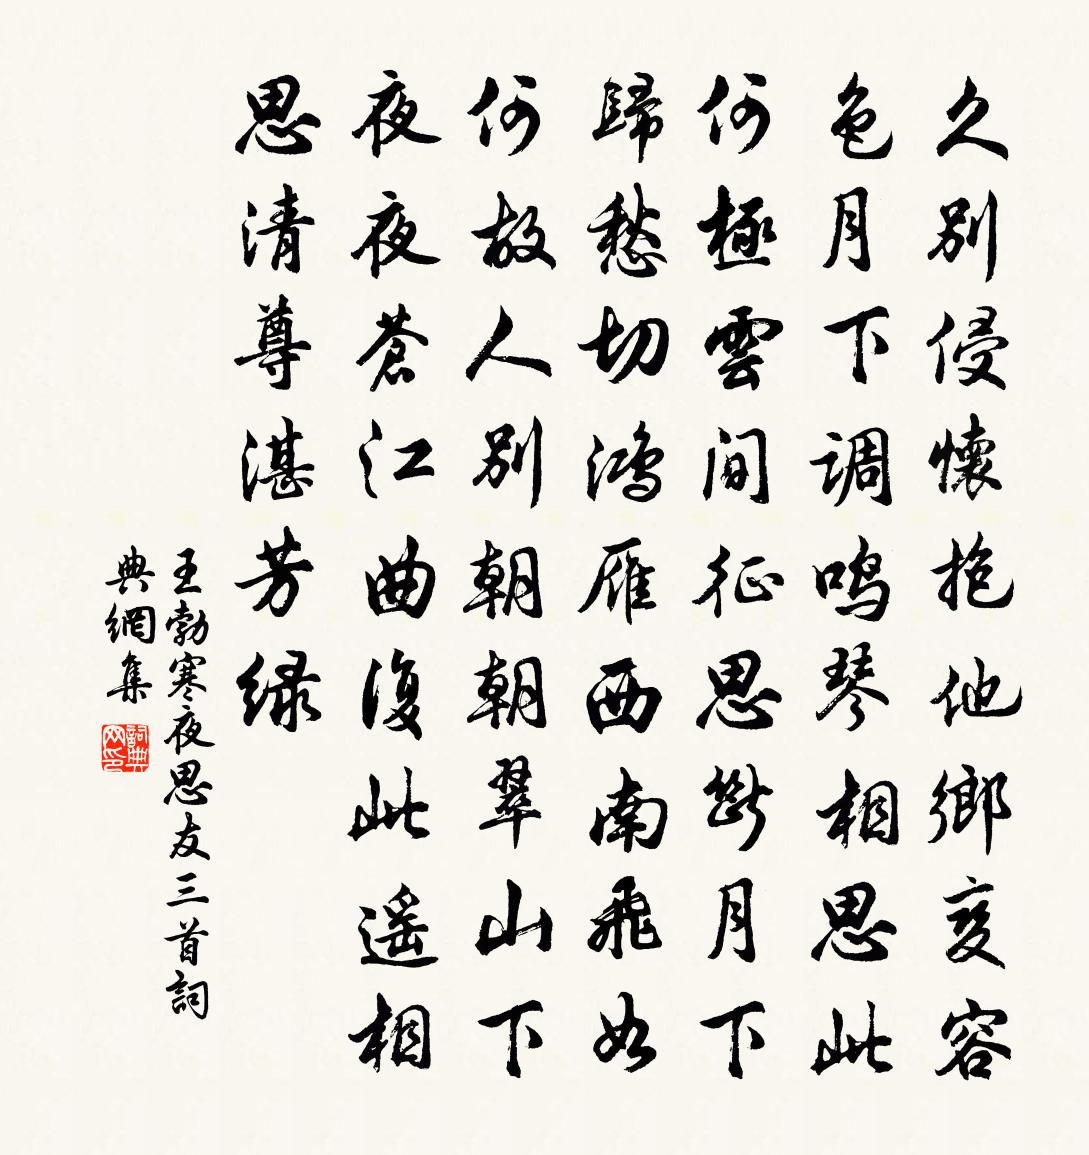 久别侵懷抱他鄉变容
色月下调鸣琴相思此
何極雲间征思断月下
歸愁切鸿雁西南飛如
何故人别朝朝翠山下
夜夜蒼江曲復此遥相
思清尊湛芳緑
王勃寒夜思友三首詞
典網集
詞典网印